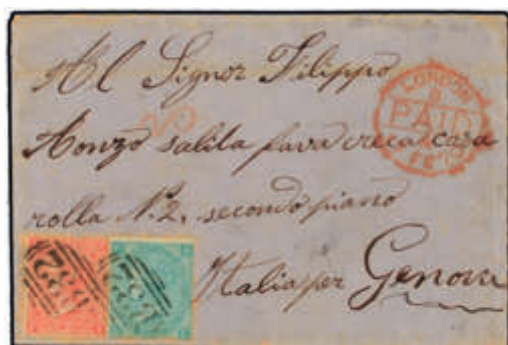 Al Signor Filippo
Aonzo salita fava greca casa
rolla N.º 2. secondo piano
Italia per Genova
LONDON
PAID